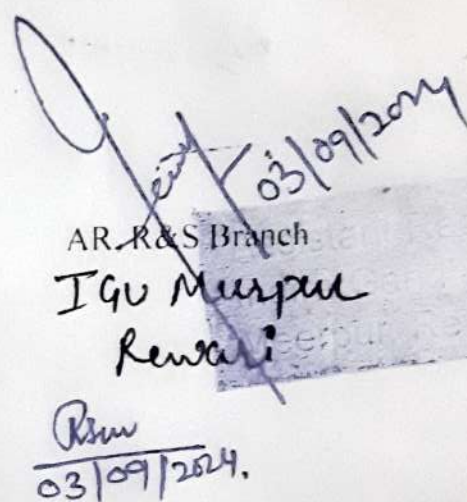 03/09/2024
AR. R&S Branch
IGU Meerpur
Rewari
03/09/2024.